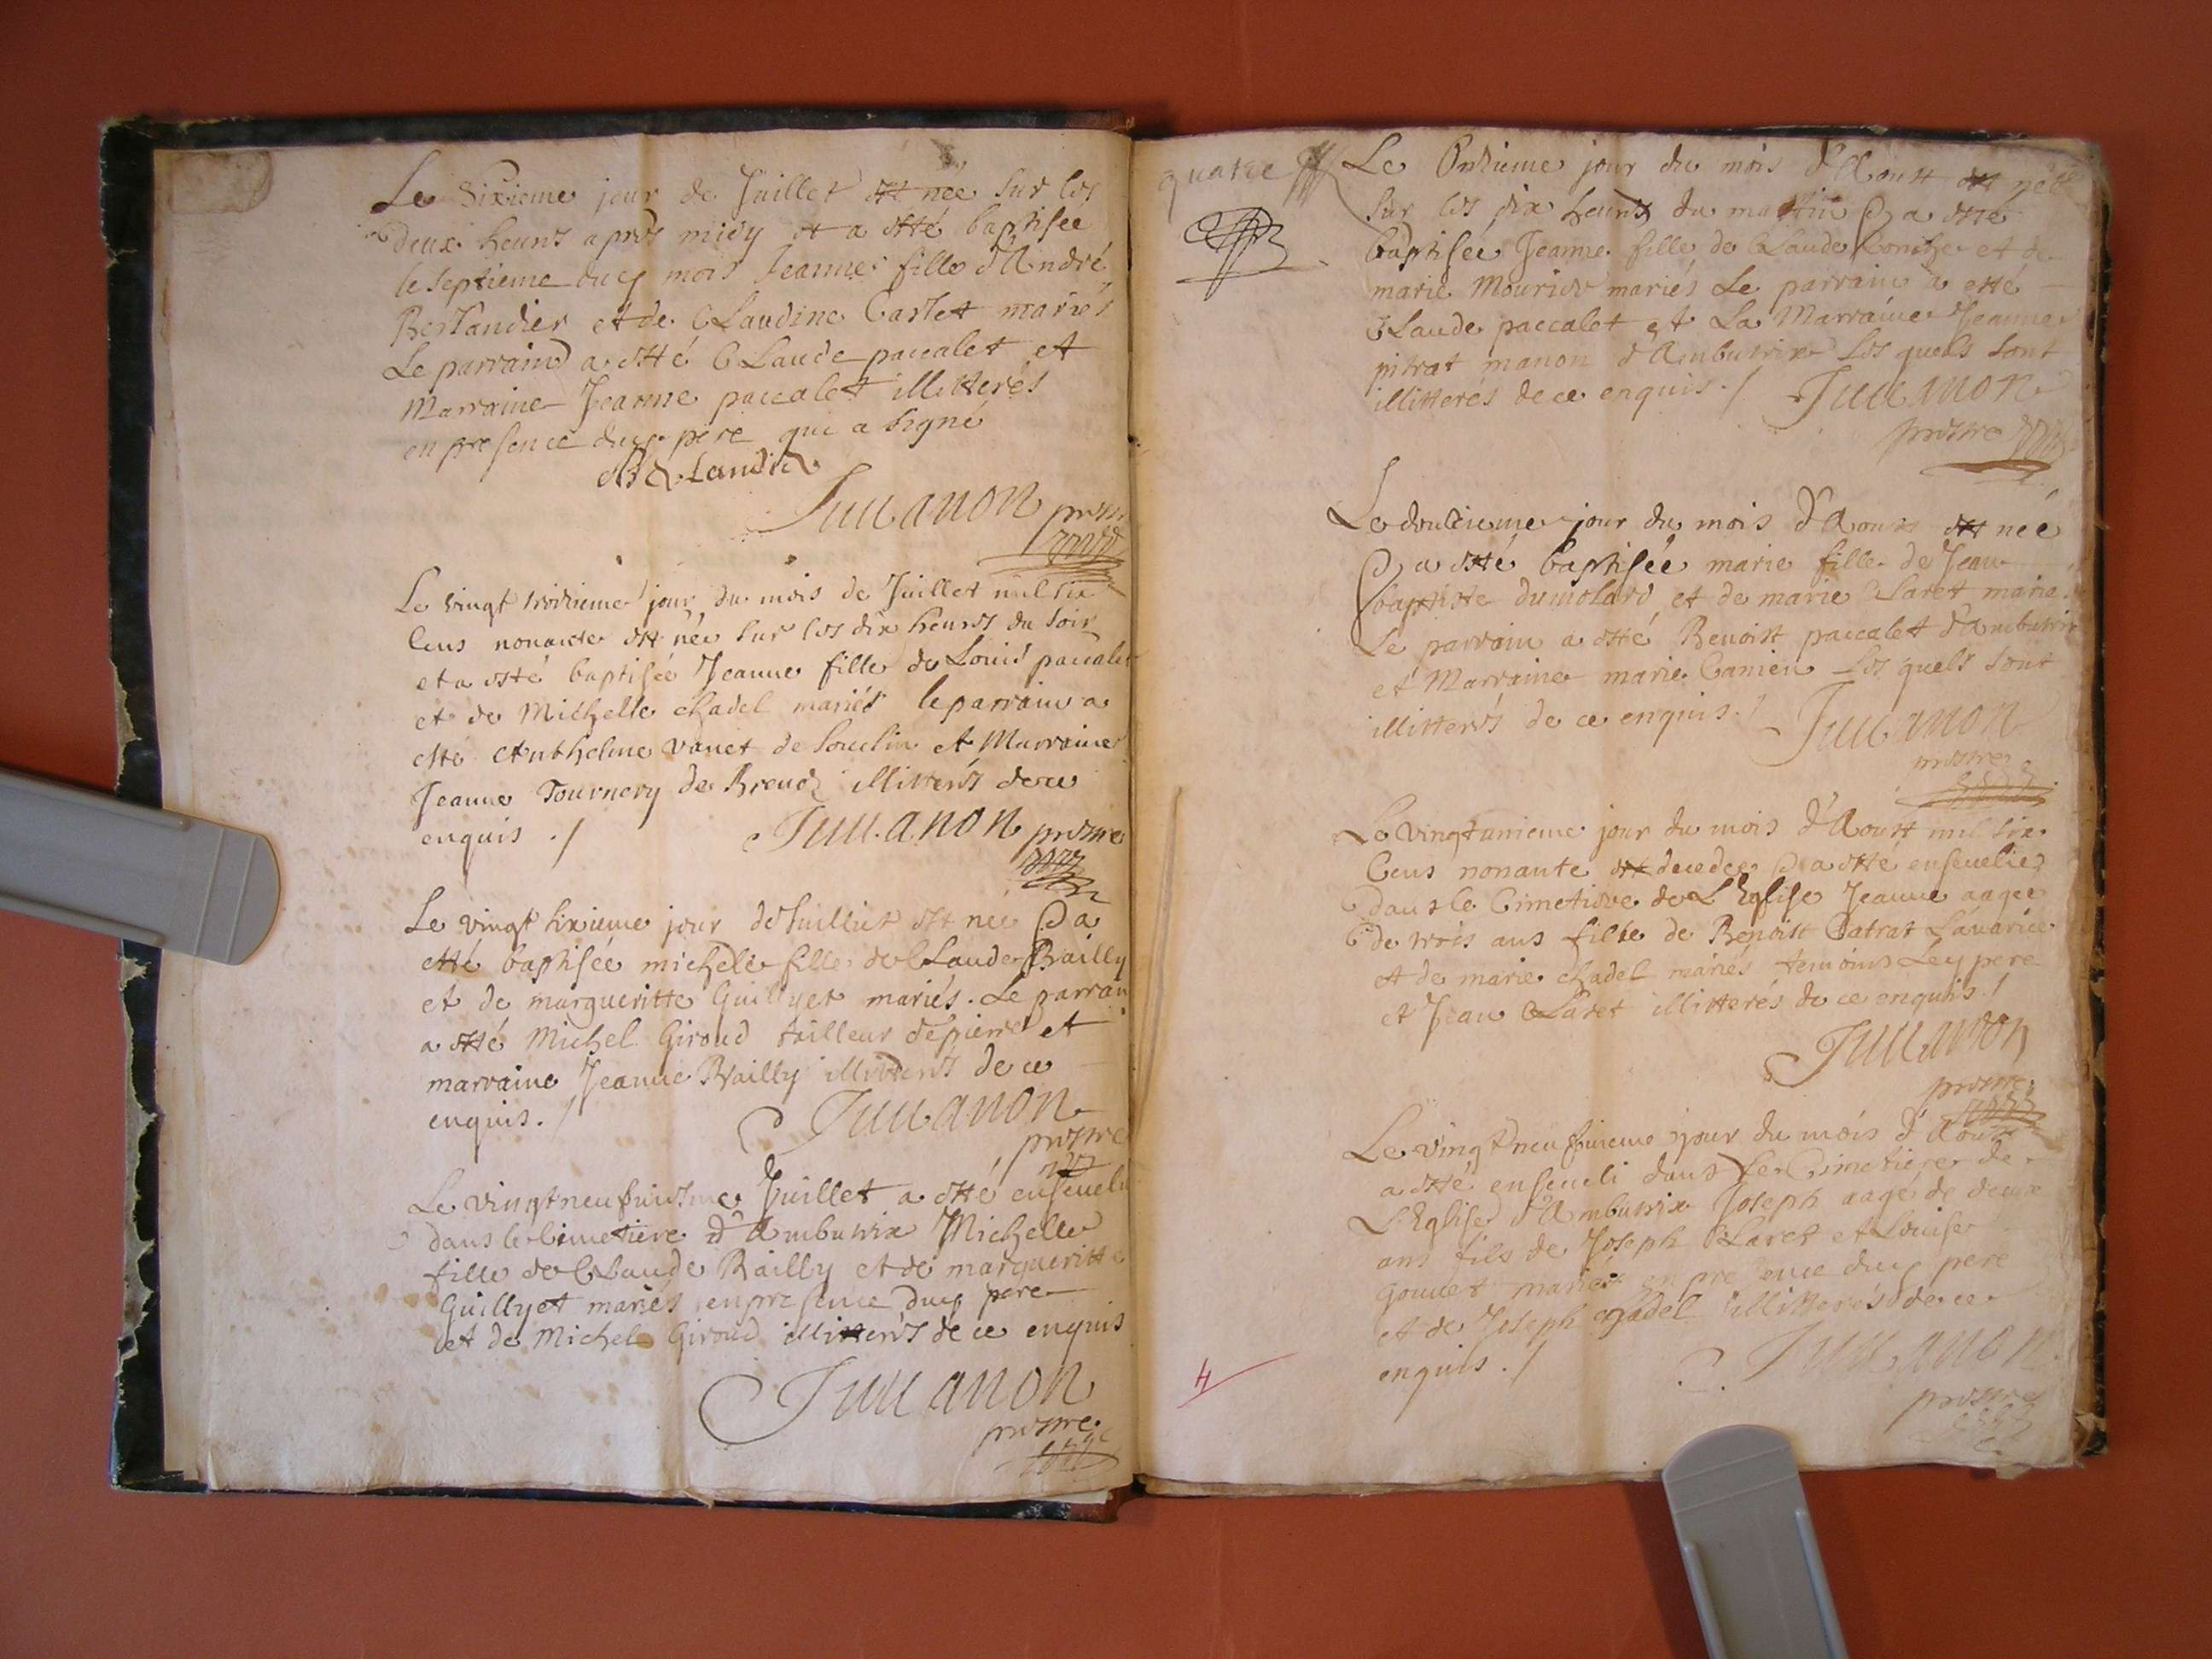 Le Sixieme jour de Juillet est née sur les
deux heures apres midy et a esté baptisée
le septieme dud mois Jeanne fille d'André
Berlandier et de Claudine Carlet mariés
Le parrain a esté Claude paccalet et
Marraine Jeanne paccalet illitterés
en presence dud pere qui a signé
Berlandier
Jullanon prestre
Le vingt troisieme jour du mois de Juillet mil six
Cens nonante est née sur les dix heures du soir
et a esté baptisée Jeanne fille de Louis paccalet
et de Michelle chadel mariés le parrain a
esté Anthelme vanet de Souclin et Marraine
Jeanne Tournery de Brenod illitterés de ce
enquis ./ Jullanon prestre
Le vingt sixieme jour de Juilliet est née & a
esté baptisée michele fille de Claude Railly
et de margueritte Guillyet mariés. Le parrain
a esté Michel Giroud tailleur de pierre et
marraine Jeanne Railly illitterés de ce
enquis. / Jullanon
prestre
Le vingtneufuiesme Juillet a esté enseveli
dans le Cimetiere d'Ambutrix Michelle
fille de Claude Railly et de margueritte
Guillyet mariés en presence dud pere
et de Michel Giroud illitterés de ce enquis
Jullanon
prestre
quatre Le Onzieme jour du mois d'Aoust est née
sur les dix heures du matin & a esté
baptisée Jeanne fille de Claude et de
marie Mourier mariés Le parrain a esté
Claude paccalet et La Marraine Jeanne
pitrat manon d'Ambutrix Les quels sont
illitterés de ce enquis. / Jullanon
prestre
Le douzieme jour du mois d'Aoust est née
& a esté baptisée marie fille de Jean
baptiste dumolard et de marie Claret mariés
Le parrain a esté Benoist paccalet d'Ambutrix
et Marraine marie Camien Les quels sont
illitterés de ce enquis. / Jullanon
prestre
Le vingtunieme jour du mois d'Aoust mil six
Cens nonante est decedee & a esté ensevelie
dans le Cimetiere de L'Eglise Jeanne aagee
de trois ans fille de Benoist Patrat
et de marie chadel mariés temoins Led pere
et Jean Claret illitterés de ce enquis. /
Jullanon
prestre
Le vingtneufuieme jour du mois d'Aoust
a esté enseveli dans le Cimetiere de
L'Eglise d'Ambutrix Joseph aagé de deux
ans fils de Joseph Claret et Louise
Gouuet mariés en presence dud pere
et de Joseph chadel illitterés de ce
enquis. / Jullanon
prestre
4